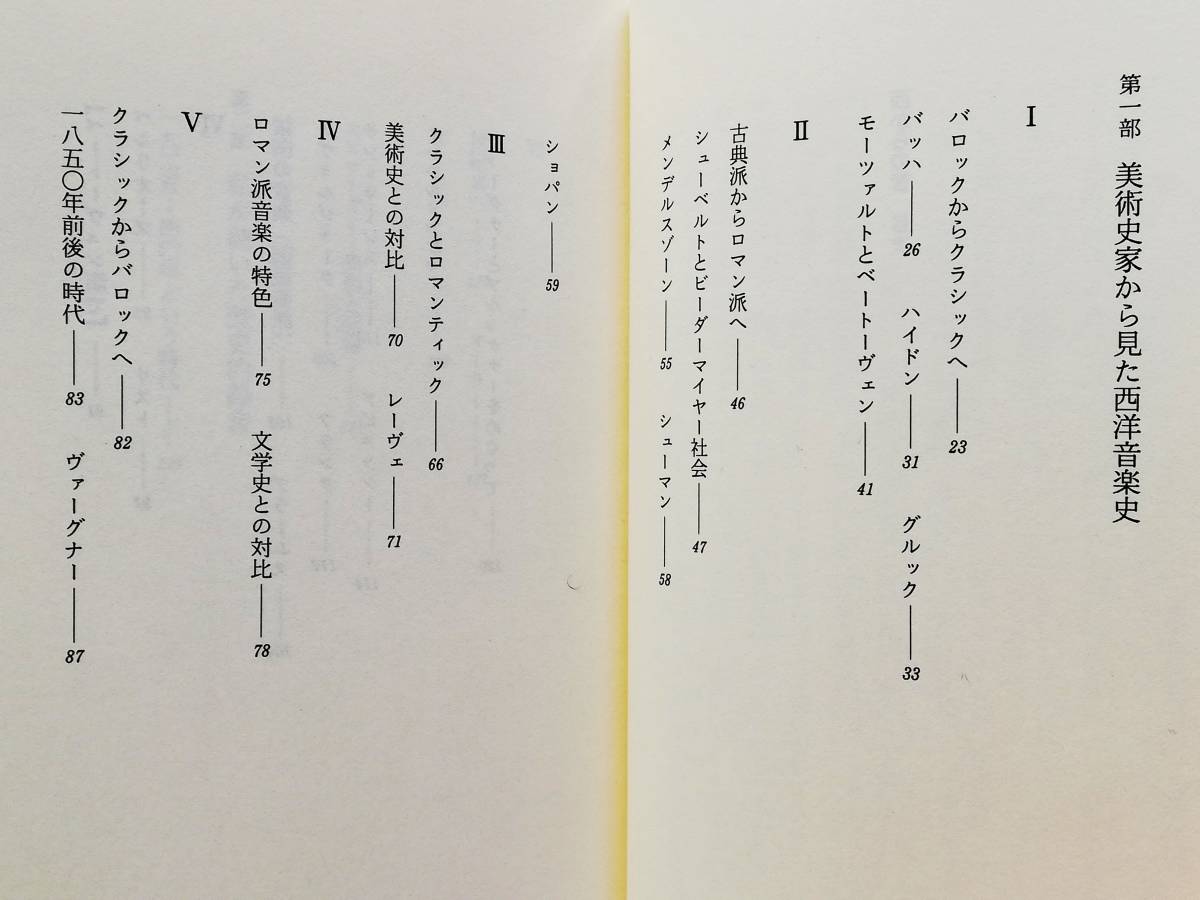 第一部　美術史家から見た西洋音楽史
Ⅰ
バロックからクラシックへ――23
バッハ――26　ハイドン――31　グルック――33
モーツァルトとベートーヴェン――41
Ⅱ
古典派からロマン派へ――46
シューベルトとビーダーマイヤー社会――47
メンデルスゾーン――55　シューマン――58
ショパン――59
Ⅲ
クラシックとロマンティック――66
美術史との対比――70　レーヴェ――71
Ⅳ
ロマン派音楽の特色――75　文学史との対比――78
Ⅴ
クラシックからバロックへ――82
一八五〇年前後の時代――83　ヴァーグナー――87